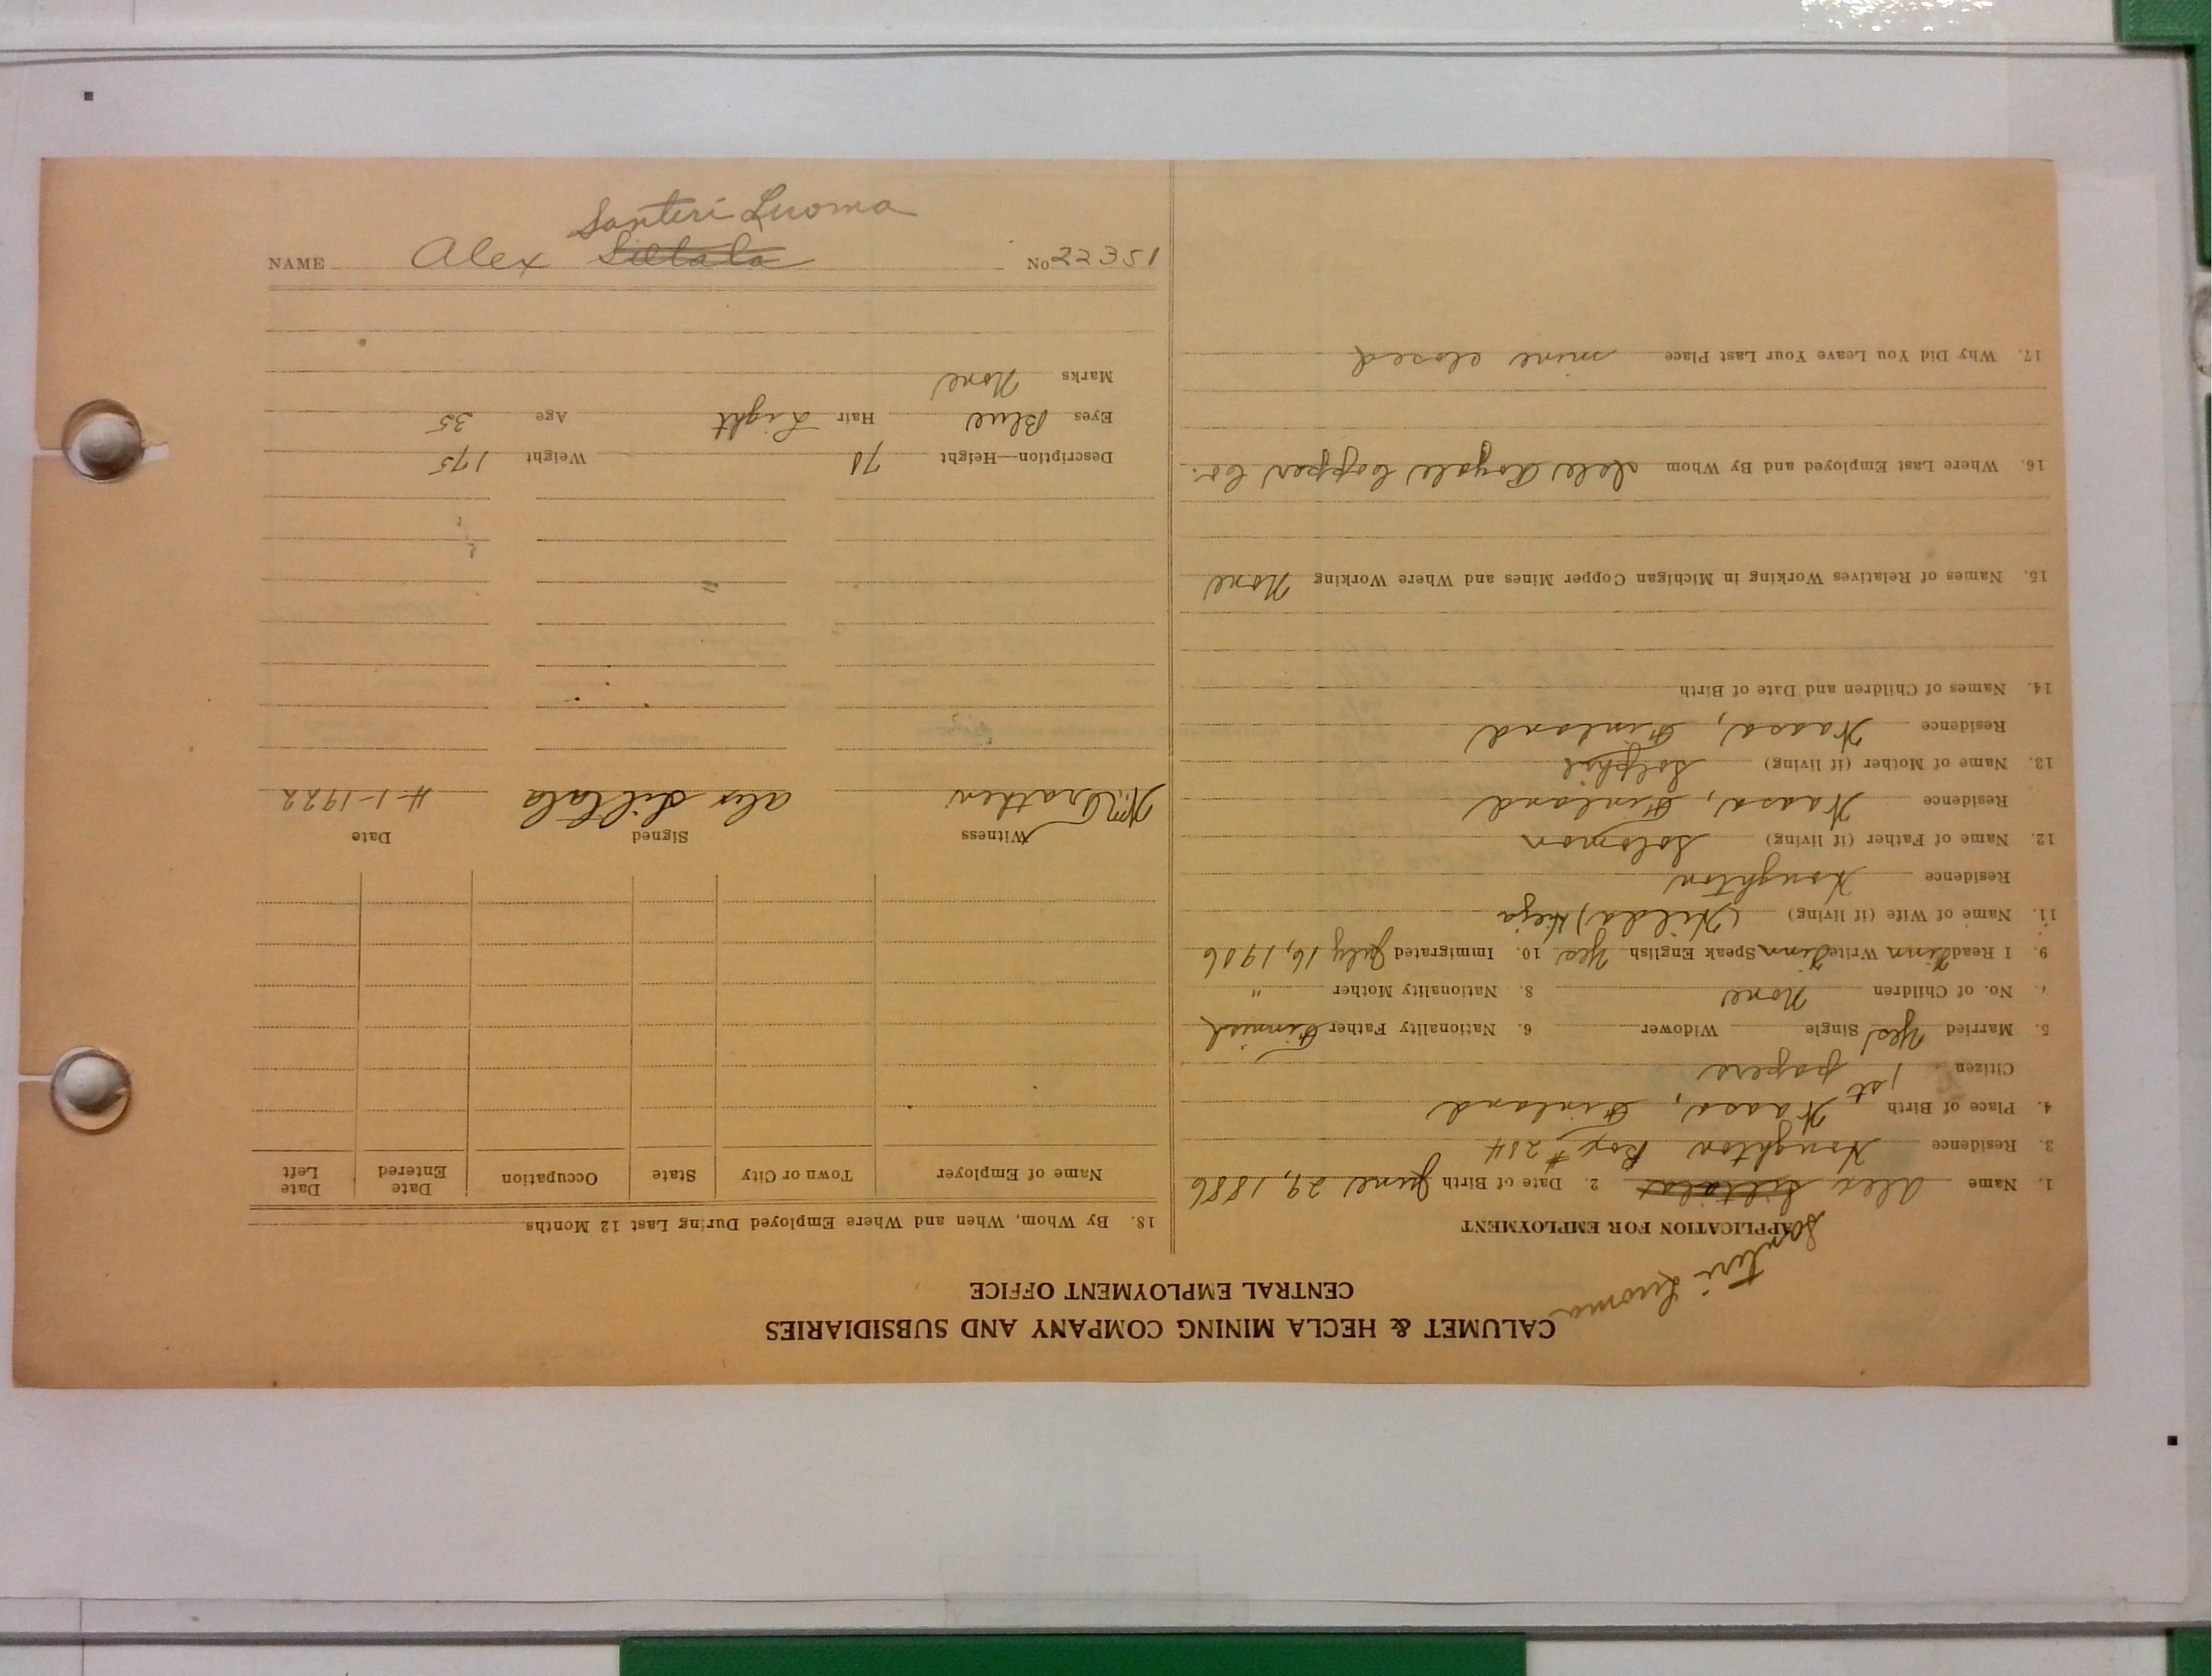 Santeri Luoma
NAME Alex Siltala No. 22351
CALUMET & HECLA MINING COMPANY AND SUBSIDIARIES
CENTRAL EMPLOYMENT OFFICE
Santeri Luoma
APPLICATION FOR EMPLOYMENT
1. Name Alex Siltala 2. Date of Birth June 29, 1886
3. Residence Houghton Box #284
4. Place of Birth Waasa, Finland
Citizen 1st papers
5. Married Yes Single Widower 6. Nationality Father Finnish
7. No. of Children None 8. Nationality Mother "
9. I Read Finn Write Finn Speak English Yes 10. Immigrated July 16, 1906
11. Name of Wife (if living) (Hilda)
Residence Houghton
12. Name of Father (if living) Solomon
Residence Waasa, Finland
13. Name of Mother (if living)
Residence Waasa, Finland
14. Names of Children and Date of Birth
15. Names of Relatives Working in Michigan Copper Mines and Where Working None
16. Where Last Employed and By Whom Isle Royale Copper Co.
17. Why Did You Leave Your Last Place mine closed
18. By Whom, When and Where Employed During Last 12 Months
Name of Employer Town or City State Occupation Date Entered Date Left
Witness Signed Date
Alex Siltala 4-1-1922
Description—Height 71 Weight 175
Eyes Blue Hair Light Age 35
Marks None